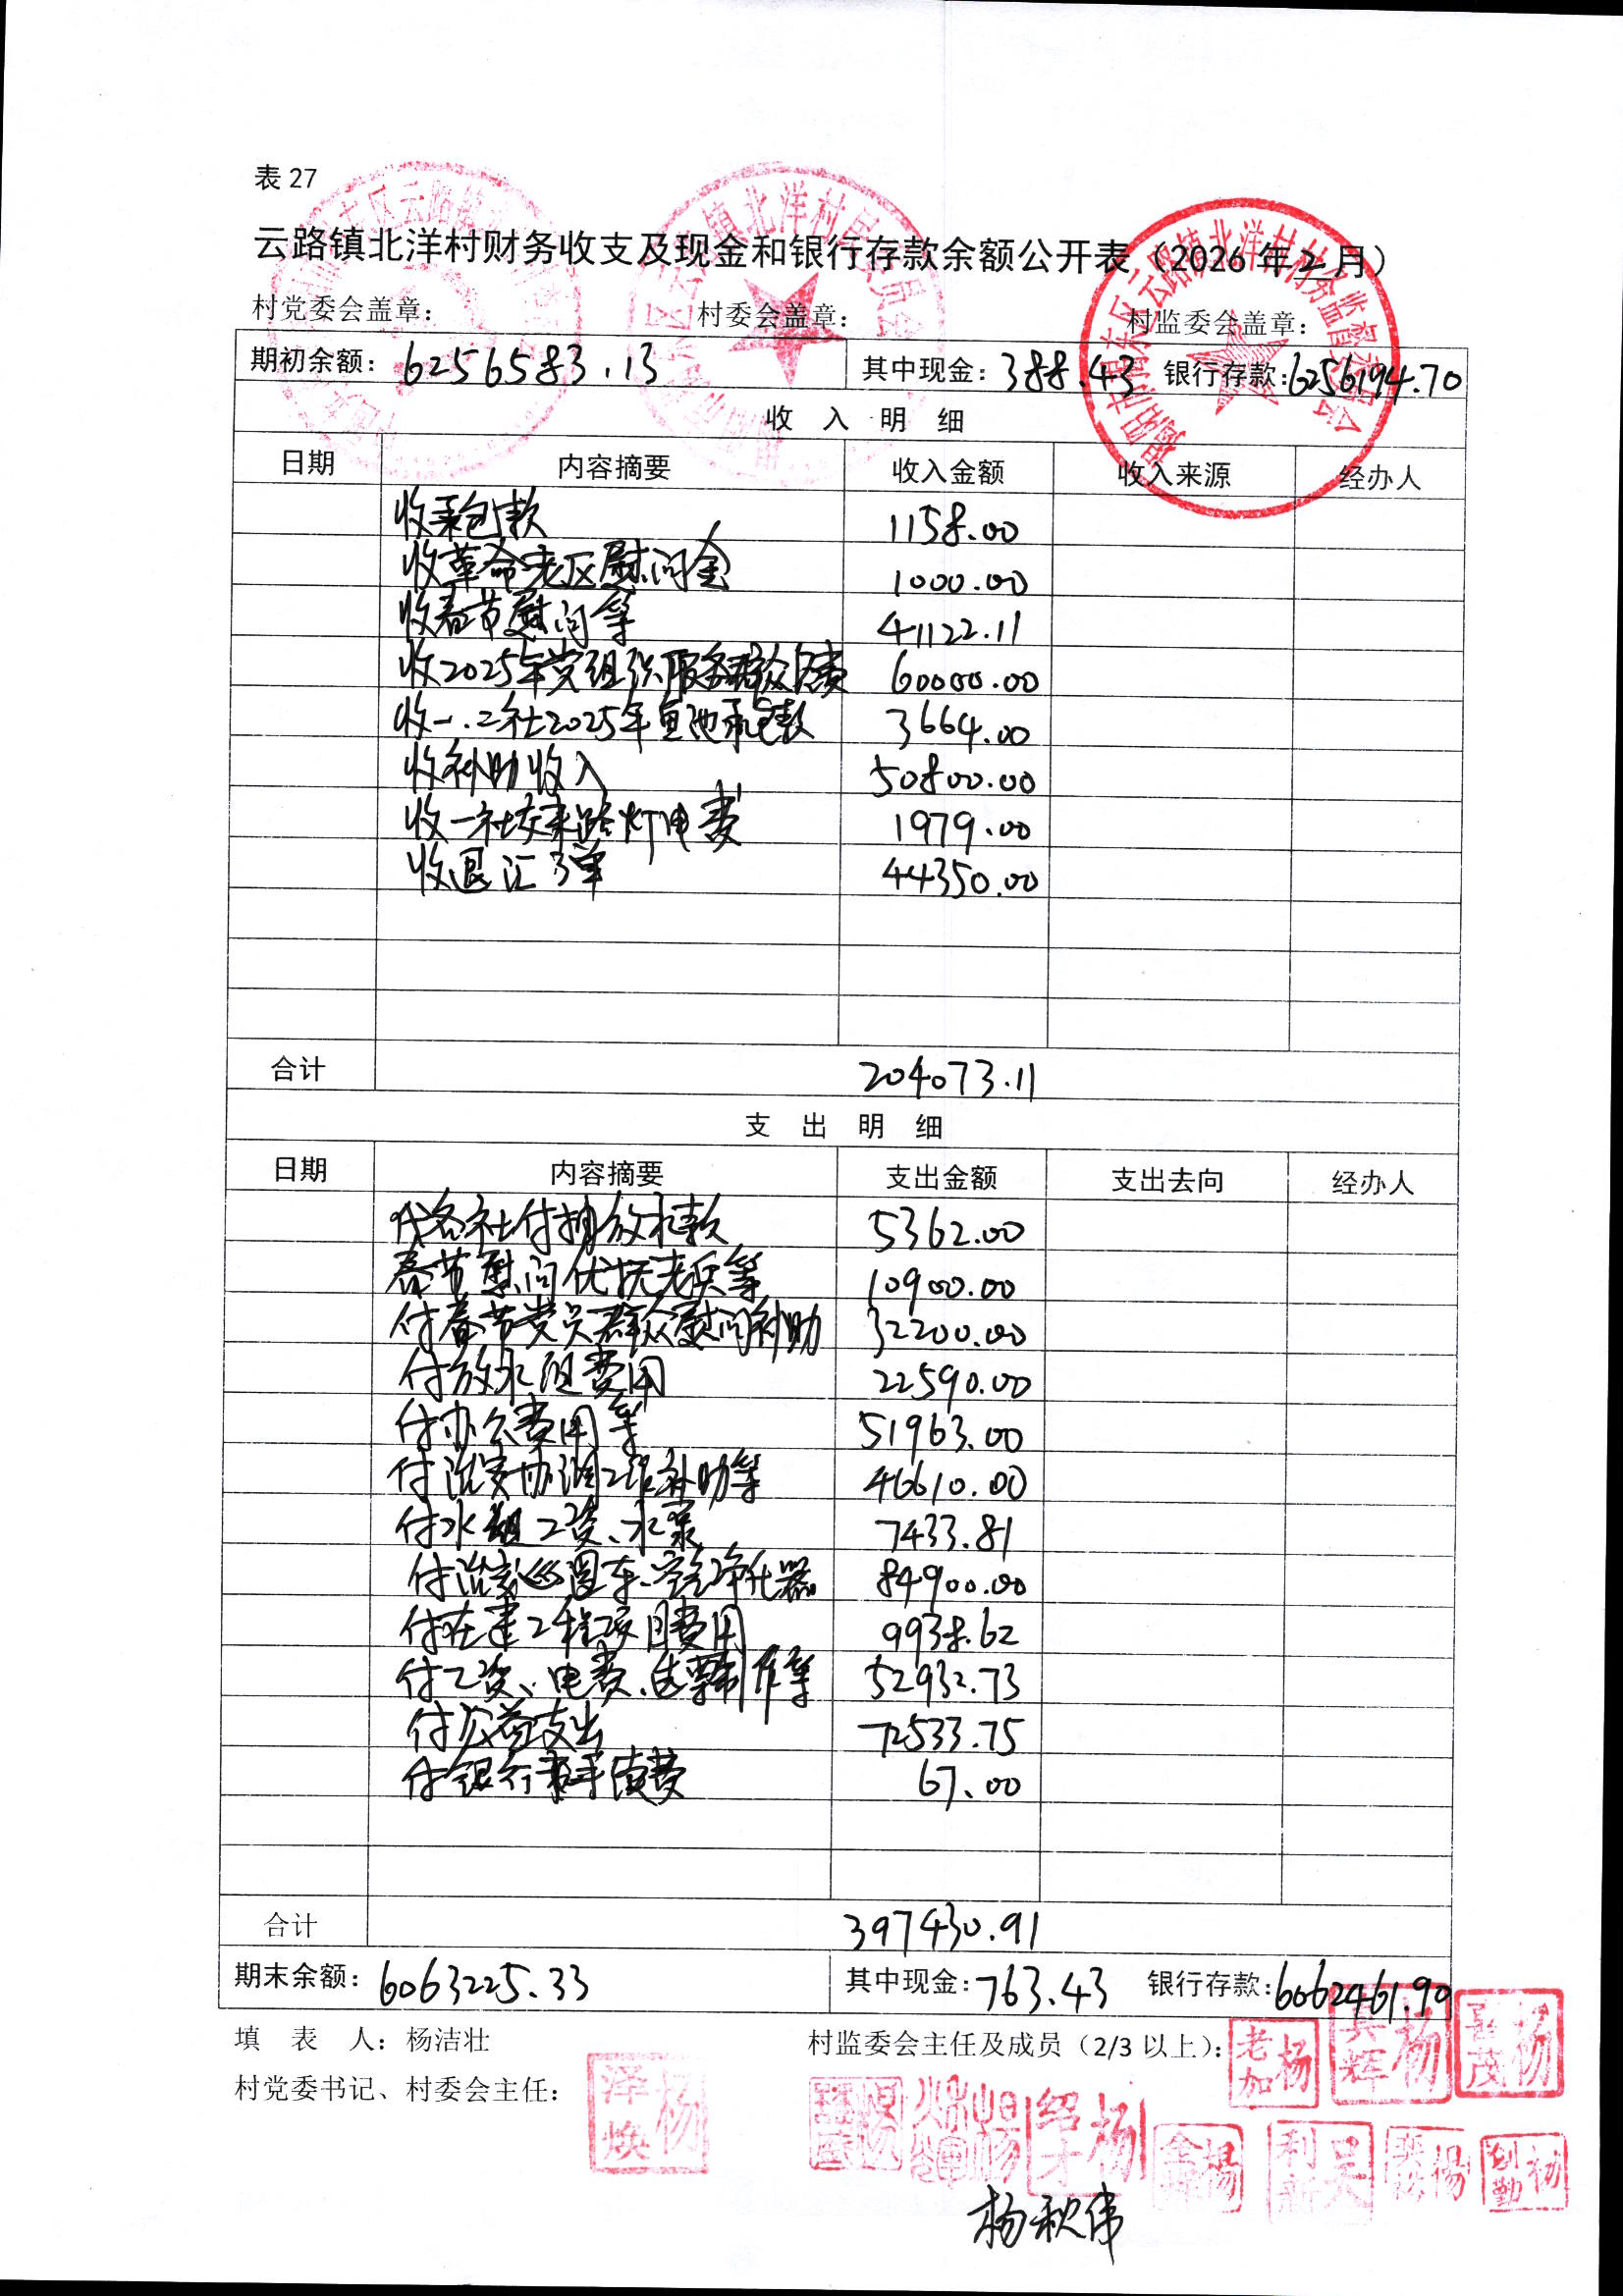 表 27
云路镇北洋村财务收支及现金和银行存款余额公开表（2026 年 2 月）
村党委会盖章： 村委会盖章： 村监委会盖章：
期初余额：6256583.13 其中现金：388.43 银行存款：6256194.70
收 入 明 细
日期 内容摘要 收入金额 收入来源 经办人
收承包款 1158.00
收革命老区慰问金 1000.00
收春节慰问等 41122.11
收2025年党组织服务群众经费 60000.00
收一.二社2025年鱼池承包款 3664.00
收补助收入 50800.00
收一社交来路灯电费 1979.00
收退汇3单 44350.00
合计 204073.11
支 出 明 细
日期 内容摘要 支出金额 支出去向 经办人
代各社付抽放水款 5362.00
春节慰问优抚老兵等 10900.00
付春节党员群众慰问补助 32200.00
付放水组费用 22590.00
付办公费用等 51963.00
付治安协调工作补助等 46610.00
付水组工资、水泵 7433.81
付治安巡逻车、空气净化器 84900.00
付在建工程项目费用 9938.62
付工资、电费、选票制作等 52932.73
付公益支出 72533.75
付银行手续费 67.00
合计 397430.91
期末余额：6063225.33 其中现金：763.43 银行存款：6062461.90
填 表 人：杨洁壮 村监委会主任及成员（2/3 以上）：
村党委书记、村委会主任：
杨泽焕
杨老加
杨其辉
杨喜茂
杨绍才
吴利新
杨创勤
杨秋伟